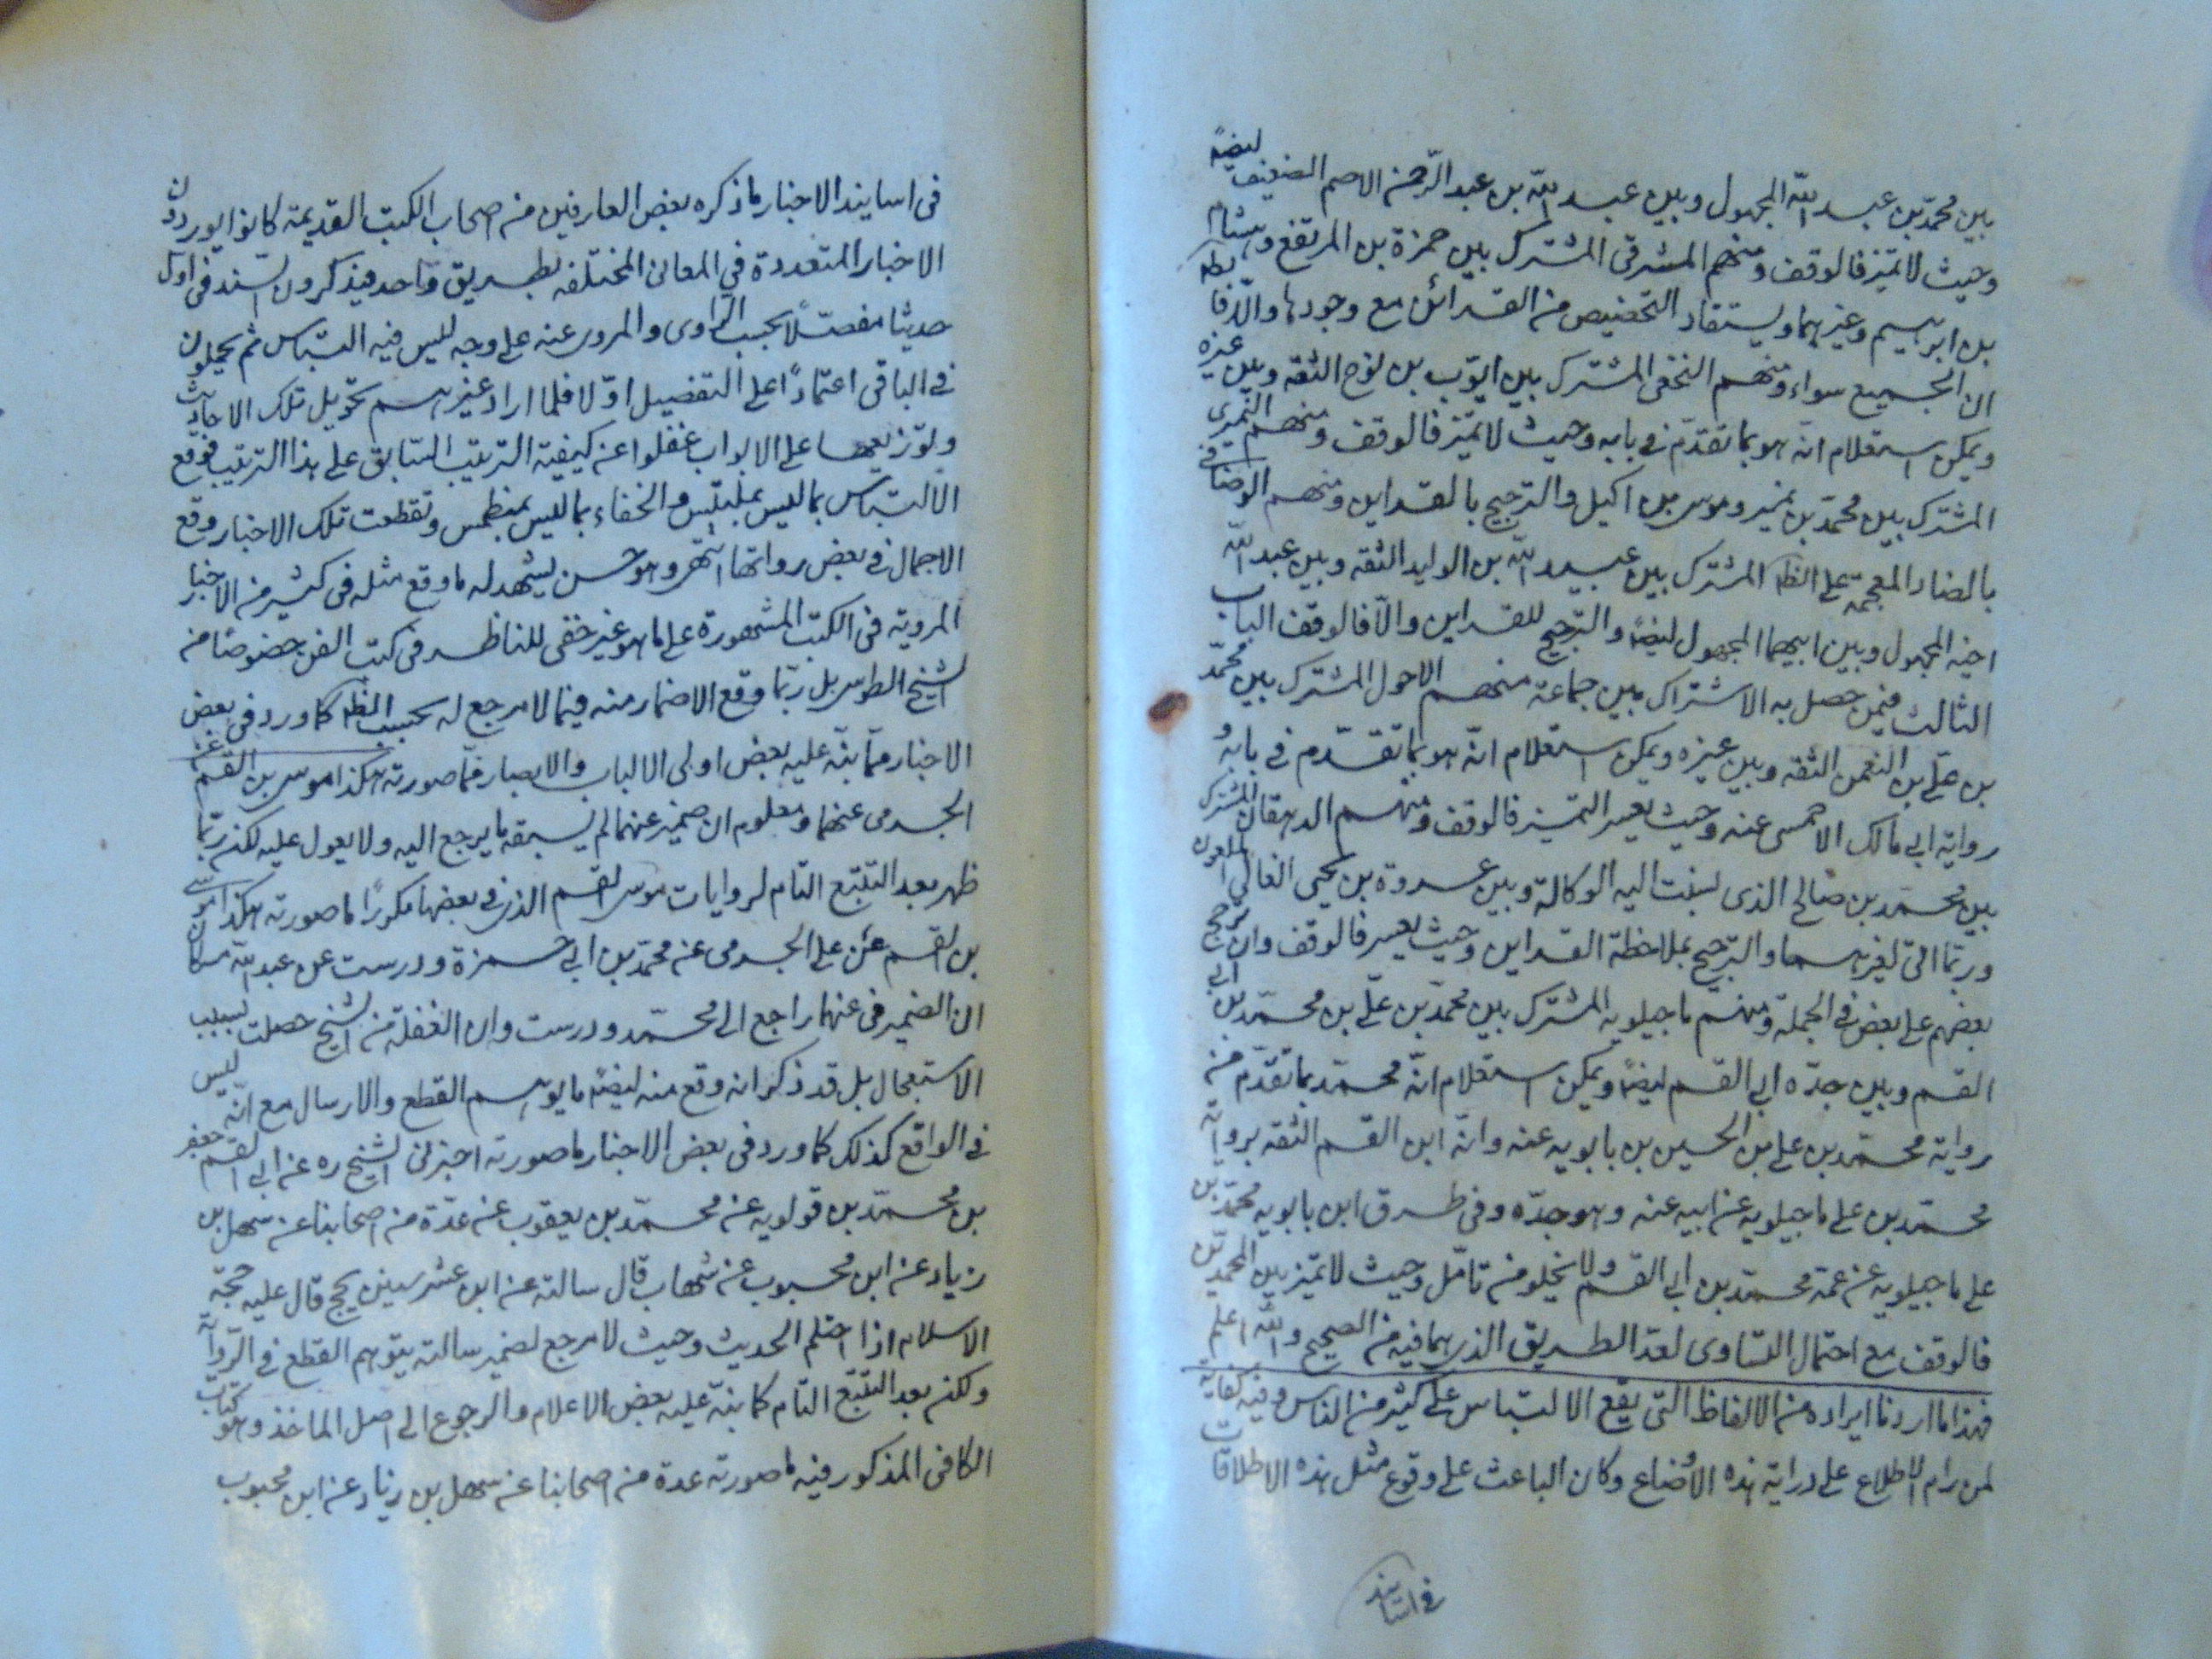 بين محمد بن عبد الله المجهول وبين عبد الله بن عبد الرحمن الاصم الضعيف ايضا
وحيث لا تميز فالوقف ومنهم المشرقى المشترك بين حمزة بن المرتفع وهشام
بن ابرهيم وغيرهما ويستفاد التخصيص من القرائن مع وجودها والا فالظ
ان الجميع سواء ومنهم النخعى المشترك بين ايوب بن نوح الثقه وبين غيره
ويمكن استعلام انه هو بما تقدم في بابه وحيث لا تميز فالوقف ومنهم النميرى
المشترك بين محمد بن نمير وموسى بن اكيل والترجيح بالقراين ومنهم الوضافى
بالضاد المعجمة على الظ المشترك بين عبيد الله بن الوليد الثقه وبين عبد الله
اخيه المجهول وبين ابيهما المجهول ايضا والترجيح للقراين والا فالوقف الباب
الثالث فيمن حصل به الاشتراك بين جماعة منهم الاحول المشترك بين محمد
بن على بن النعمن الثقه وبين غيره ويمكن استعلام انه هو بما تقدم في بابه و
رواية ابى مالك الاحمسى عنه وحيث يعسر التميز فالوقف ومنهم الدهقان المشترك
بين محمد بن صالح الذى نسبت اليه الوكالة وبين عروة بن يحيى الغالى الملعون
وربما اتى لغيرهما والترجيح بملاحظة القراين وحيث يعسر فالوقف وان ترجح
بعضهم على بعض في الجملة ومنهم ماجيلويه المشترك بين محمد بن على بن محمد بن ابى
القسم وبين جده ابى القسم ايضا ويمكن استعلام انه محمد بما تقدم من
رواية محمد بن على بن الحسين بن بابويه عنه وانه ابن القسم الثقه برواية
محمد بن على ماجيلويه عن ابيه عنه وهو جده وفى طرق ابن بابويه محمد بن
على ماجيلويه عن عمه محمد بن ابى القسم ولا يخلو من تامل وحيث لا تميز بين المحمدين
فالوقف مع احتمال التساوى لعد الطريق الذى هما فيه من الصحيح والله اعلم
فهذا ما اردنا ايراده من الالفاظ التى يقع الالتباس على كثير من الناس وفيه كفاية
لمن رام الاطلاع على دراية هذه الاوضاع وكان الباعث على وقوع مثل هذه الاطلاقات
في اسانيد
فى اسانيد الاخبار ما ذكره بعض العارفين من اصحاب الكتب القديمة كانوا يوردون
الاخبار المتعددة في المعانى المختلفه بطريق واحد فيذكرون السند فى اول
حديثا مفصلا بحسب الراوى والمروى عنه على وجه ليس فيه التباس ثم يجملون
في الباقى اعتمادا على التفصيل اولا فلما اراد غيرهم تحويل تلك الاحاديث
وتوزيعها على الابواب غفلوا عن كيفية الترتيب السابق على هذا الترتيب فوقع
الالتباس بما ليس بملتبس والخفاء بما ليس بمنطمس وتقطعت تلك الاخبار وقع
الاجمال في بعض رواتها انتهى وهو حسن يشهد له ما وقع مثله فى كثير من الاخبار
المروية فى الكتب المشهورة على ما هو غير خفى للناظر فى كتب الفن خصوصا من
الشيخ الطوسى بل ربما وقع الاضمار منه فيما لا مرجع له بحسب الظ كما ورد فى بعض
الاخبار مما نبه عليه بعض اولى الالباب والابصار فما صورته هكذا موسى بن القسم عن
الجرمى عنهما ومعلوم ان ضمير عنهما لم يسبقه ما يرجع اليه ولا يعول عليه لكن ربما
ظهر بعد التتبع التام لروايات موسى القسم الذى في بعضها مكررا ما صورته هكذا موسى
بن القسم عن على الجرمى عن محمد بن ابى حمزة ودرست عن عبد الله مسكان
ان الضمير فى عنهما راجع الى محمد ودرست وان الغفلة من الشيخ حصلت بسبب
الاستعجال بل قد ذكر انه وقع منه ايضا ما يوهم القطع والارسال مع انه ليس
في الواقع كذلك كما ورد فى بعض الاخبار ما صورته اخبرنى الشيخ ره عن ابى القسم جعفر
بن محمد بن قولويه عن محمد بن يعقوب عن عدة من اصحابنا عن سهل بن
زياد عن ابن محبوب عن شهاب قال سالته عن ابن عشر سنين يحج قال عليه حجة
الاسلام اذا احتلم الحديث وحيث لا مرجع لضمير سالته يتوهم القطع في الرواية
ولكن بعد التتبع التام كما نبه عليه بعض الاعلام والرجوع الى اصل الماخذ وهو كتاب
الكافى المذكور فيه ما صورته عدة من اصحابنا عن سهل بن زياد عن ابن محبوب